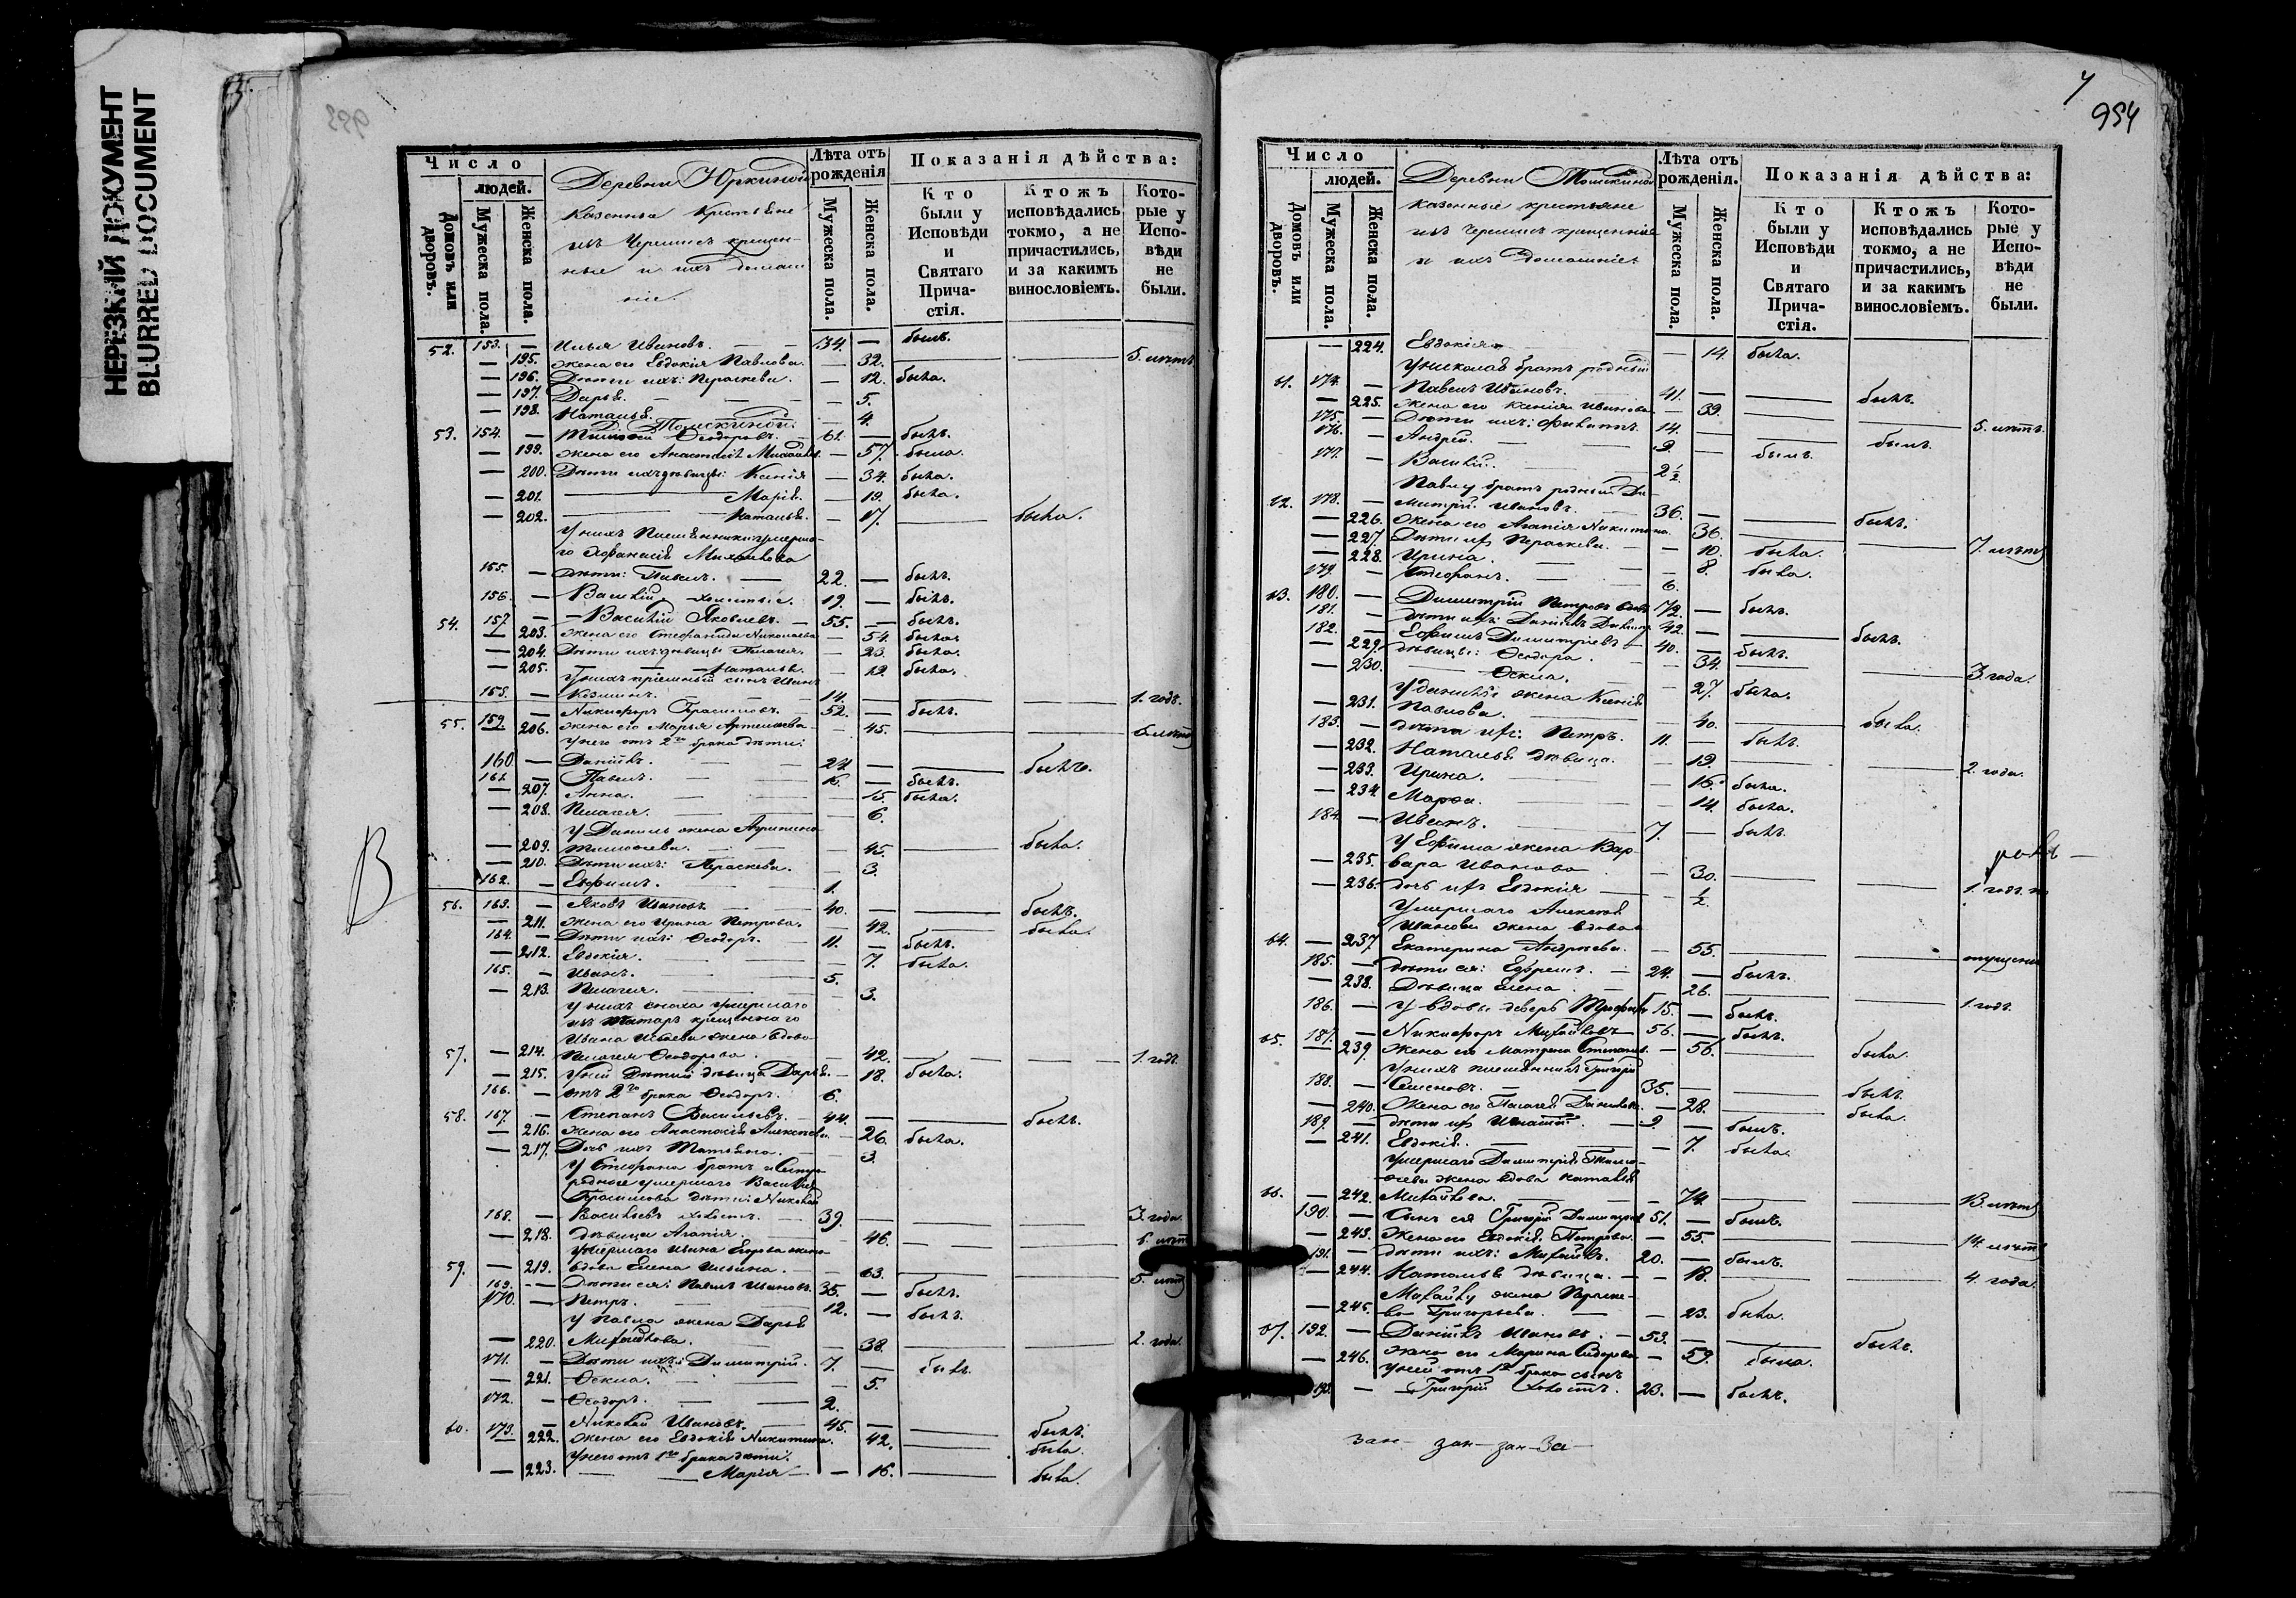 НЕРЕЗКИЙ ДОКУМЕНТ
BLURRED DOCUMENT
Число
людей.
Домовъ или дворовъ.
Мужеска пола.
Женска пола.
Деревни Юркиной
казенные крестьяне
изъ Черемисъ крещен-
ные и ихъ домаш
ніе.
Лѣта отъ рожденія
Мужеска пола.
Женска пола.
Показанія дѣйства:
Кто были у Исповѣди и Святаго Прича-стія.
Ктожъ исповѣдались токмо, а не причастились, и за какимъ винословіемъ.
Кото-рые у Испо-вѣди не были.
52. 153. — Илья Ивановъ. — 34. — былъ.
— 195. жена его Евдокія Павлова. — 32. 5. лѣтъ
— 196. Дѣти ихъ: Параскева. — 12. была.
— 197. Дарья. — 5.
— 198. Наталья. — 4.
53. 154. — Ѳеодоровъ. — 61. — былъ.
— 199. жена его Анастасія — 57. была.
— 200. Дѣти ихъ дѣвицы: Ксенія — 34. была.
— 201. Марія. — 19. была.
— 202. Наталья. — 17. — была.
У нихъ племянники умерша-
го
155. — дѣти: Павелъ. — 22. — былъ.
156. — Василій 19. — былъ.
54. 157. — Василій Яковлевъ. — 55. — былъ.
— 203. жена его Стефанида Николаева — 54. была.
— 204. Дѣти ихъ дѣвицы Пелагія. — 23. была.
— 205. — Наталья. — 19. была.
У нихъ пріемный сынъ Иванъ
158. — Козминъ. — 14. — 1. годъ.
55. 159. — Никифоръ Герасимовъ. — 52. — былъ.
206. жена его Марья — 45.
У него отъ 2го брака дѣти:
160. — Даніилъ. — 24. — былъ.
161. — Павелъ. — 16. — былъ.
— 207. Анна. — 15. была.
— 208. Пелагія. — 6.
У Даніила жена
— 209. — 45. — была.
— 210. Дѣти ихъ: Параскева. — 3.
162. — Евфимъ. — 1.
56. 163. — Яковъ Ивановъ — 40. — былъ.
— 211. жена его Ирина Петрова. — 42. — была.
164. — Дѣти ихъ: Ѳеодоръ. — 11. — былъ.
— 212. Евдокія. — 7. была.
165. — Иванъ. — 5.
— 213. Пелагія. — 3.
У нихъ сноха умершаго
изъ татаръ крещеннаго
Ивана жена вдова
57. — 214. Пелагія Ѳеодорова. — 42. — 1. годъ.
— 215. У ней дѣти: дѣвица Дарья. — 18. была.
166. — отъ 2го брака Ѳеодоръ. 6.
58. 167. — Степанъ Васильевъ. — 44. — былъ.
— 216. жена его Анастасія Алексѣева — 26. была.
— 217. Дочь ихъ Татьяна. — 3.
У Стефана братъ
родные умершаго Василія
Герасимова дѣти: Николай
168. — Васильевъ холостъ. — 39. — 3. года.
— 218. дѣвица Агапія. — 46. — 6. лѣтъ
умершаго Ивана Егорова жена
59. — 219. вдова Елена Ильина. — 63. — 5. лѣтъ
169. — Дѣти ея: Павелъ Ивановъ. 35. — былъ.
170. — Петръ. — 12. — былъ.
У Павла жена Дарья
— 220. Михайлова. — 38. — 2. года.
171. — Дѣти ихъ: Димитрій. 7. — былъ.
— 221. Ѳекла. — 5.
172. — Ѳеодоръ. — 2.
60. 173. — Николай Ивановъ. — 45. — былъ.
222. жена его Евдокія Никитина. — 42. — была.
У него отъ 1го брака дѣти:
— 223. — Марія — 16. — была.
7
954
Число
людей.
Домовъ или дворовъ.
Мужеска пола.
Женска пола.
Деревни
казенные крестьяне
изъ Черемисъ крещенные
и ихъ домашніе.
Лѣта отъ рожденія.
Мужеска пола.
Женска пола.
Показанія дѣйства:
Кто были у Исповѣди и Святаго Прича-стія.
Ктожъ исповѣдались токмо, а не причастились, и за какимъ винословіемъ.
Кото-рые у Испо-вѣди не были.
— 224. Евдокія — 14. была.
У Николая братъ родный
61. 174. — Павелъ Ивановъ. — 41. — былъ.
— 225. жена его Ксенія Иванова — 39. — 5. лѣтъ.
175. — Дѣти ихъ: 14. — былъ.
176. — Андрей. — 9. — былъ.
177. — Василій. — 2½
Павлу братъ родный Ди-
62. 178. — митрій Ивановъ. — 36. — былъ.
— 226. жена его Агапія Никитина. 36. — 7. лѣтъ
— 227. Дѣти ихъ Параскева. — 10. была.
— 228. Ирина. — 8. была.
179. — Стефанъ. — 6.
63. 180. — Димитрій Петровъ вдовъ 72. — былъ.
181. — дѣти ихъ: Даніилъ 42. — былъ.
182. — Ефимъ Димитріевъ — 40. — былъ.
— 229. дѣвицы: Ѳеодора. — 34. — 3. года.
— 230. — Ѳекла. — 27. была.
У Даніила жена Ксенія
— 231. Павлова. — 40. — была.
183. — дѣти ихъ: Петръ. 11. — былъ.
— 232. Наталья дѣвица. — 19. — 2. года.
— 233. Ирина. — 16. была.
— 234. Марѳа. — 14. была.
184. — Иванъ. — 7. — былъ.
У Ефима жена Вар-
— 235. вара Иванова — 30. — 1. годъ
— 236. дочь ихъ Евдокія — ½.
Умершаго Алексѣя
Иванова жена вдова
64. — 237. Екатерина Андреева. — 55.
185. — дѣти ея: Ефремъ. — 24. — былъ.
— 238. Дѣвица Елена. — 26. — 1. годъ.
186. — У вдовы деверь 15. — былъ.
65. 187. — Никифоръ Михайловъ — 56. — былъ.
— 239. жена его Матрена Степанова. — 56. — была.
У нихъ племянникъ Григорій
188. — Семеновъ. — 35. — былъ.
— 240. Жена его Пелагея — 28. — была.
189. — дѣти ихъ — 9 — былъ.
— 241. Евдокія. — 7. была.
умершаго Димитрія
жена вдова Наталья
66. — 242. Михайлова. — 74. — 13. лѣтъ
190. — Сынъ ея Григорій Димитріевъ 51. — былъ.
— 243. Жена его Евдокія Петрова. — 55. — 14. лѣтъ
191. — дѣти ихъ: Михаилъ. 20. — былъ.
— 244. Наталья дѣвица. — 18. — 4. года.
Михайлу жена Параске-
— 245. ва Григорьева. — 23. была.
67. 192. — Даніилъ Ивановъ. — 53. — былъ.
— 246. жена его Марина — 59. была.
У ней отъ 1го брака сынъ
193. — Григорій холостъ. 23. — былъ.
зан- зан- зан- за